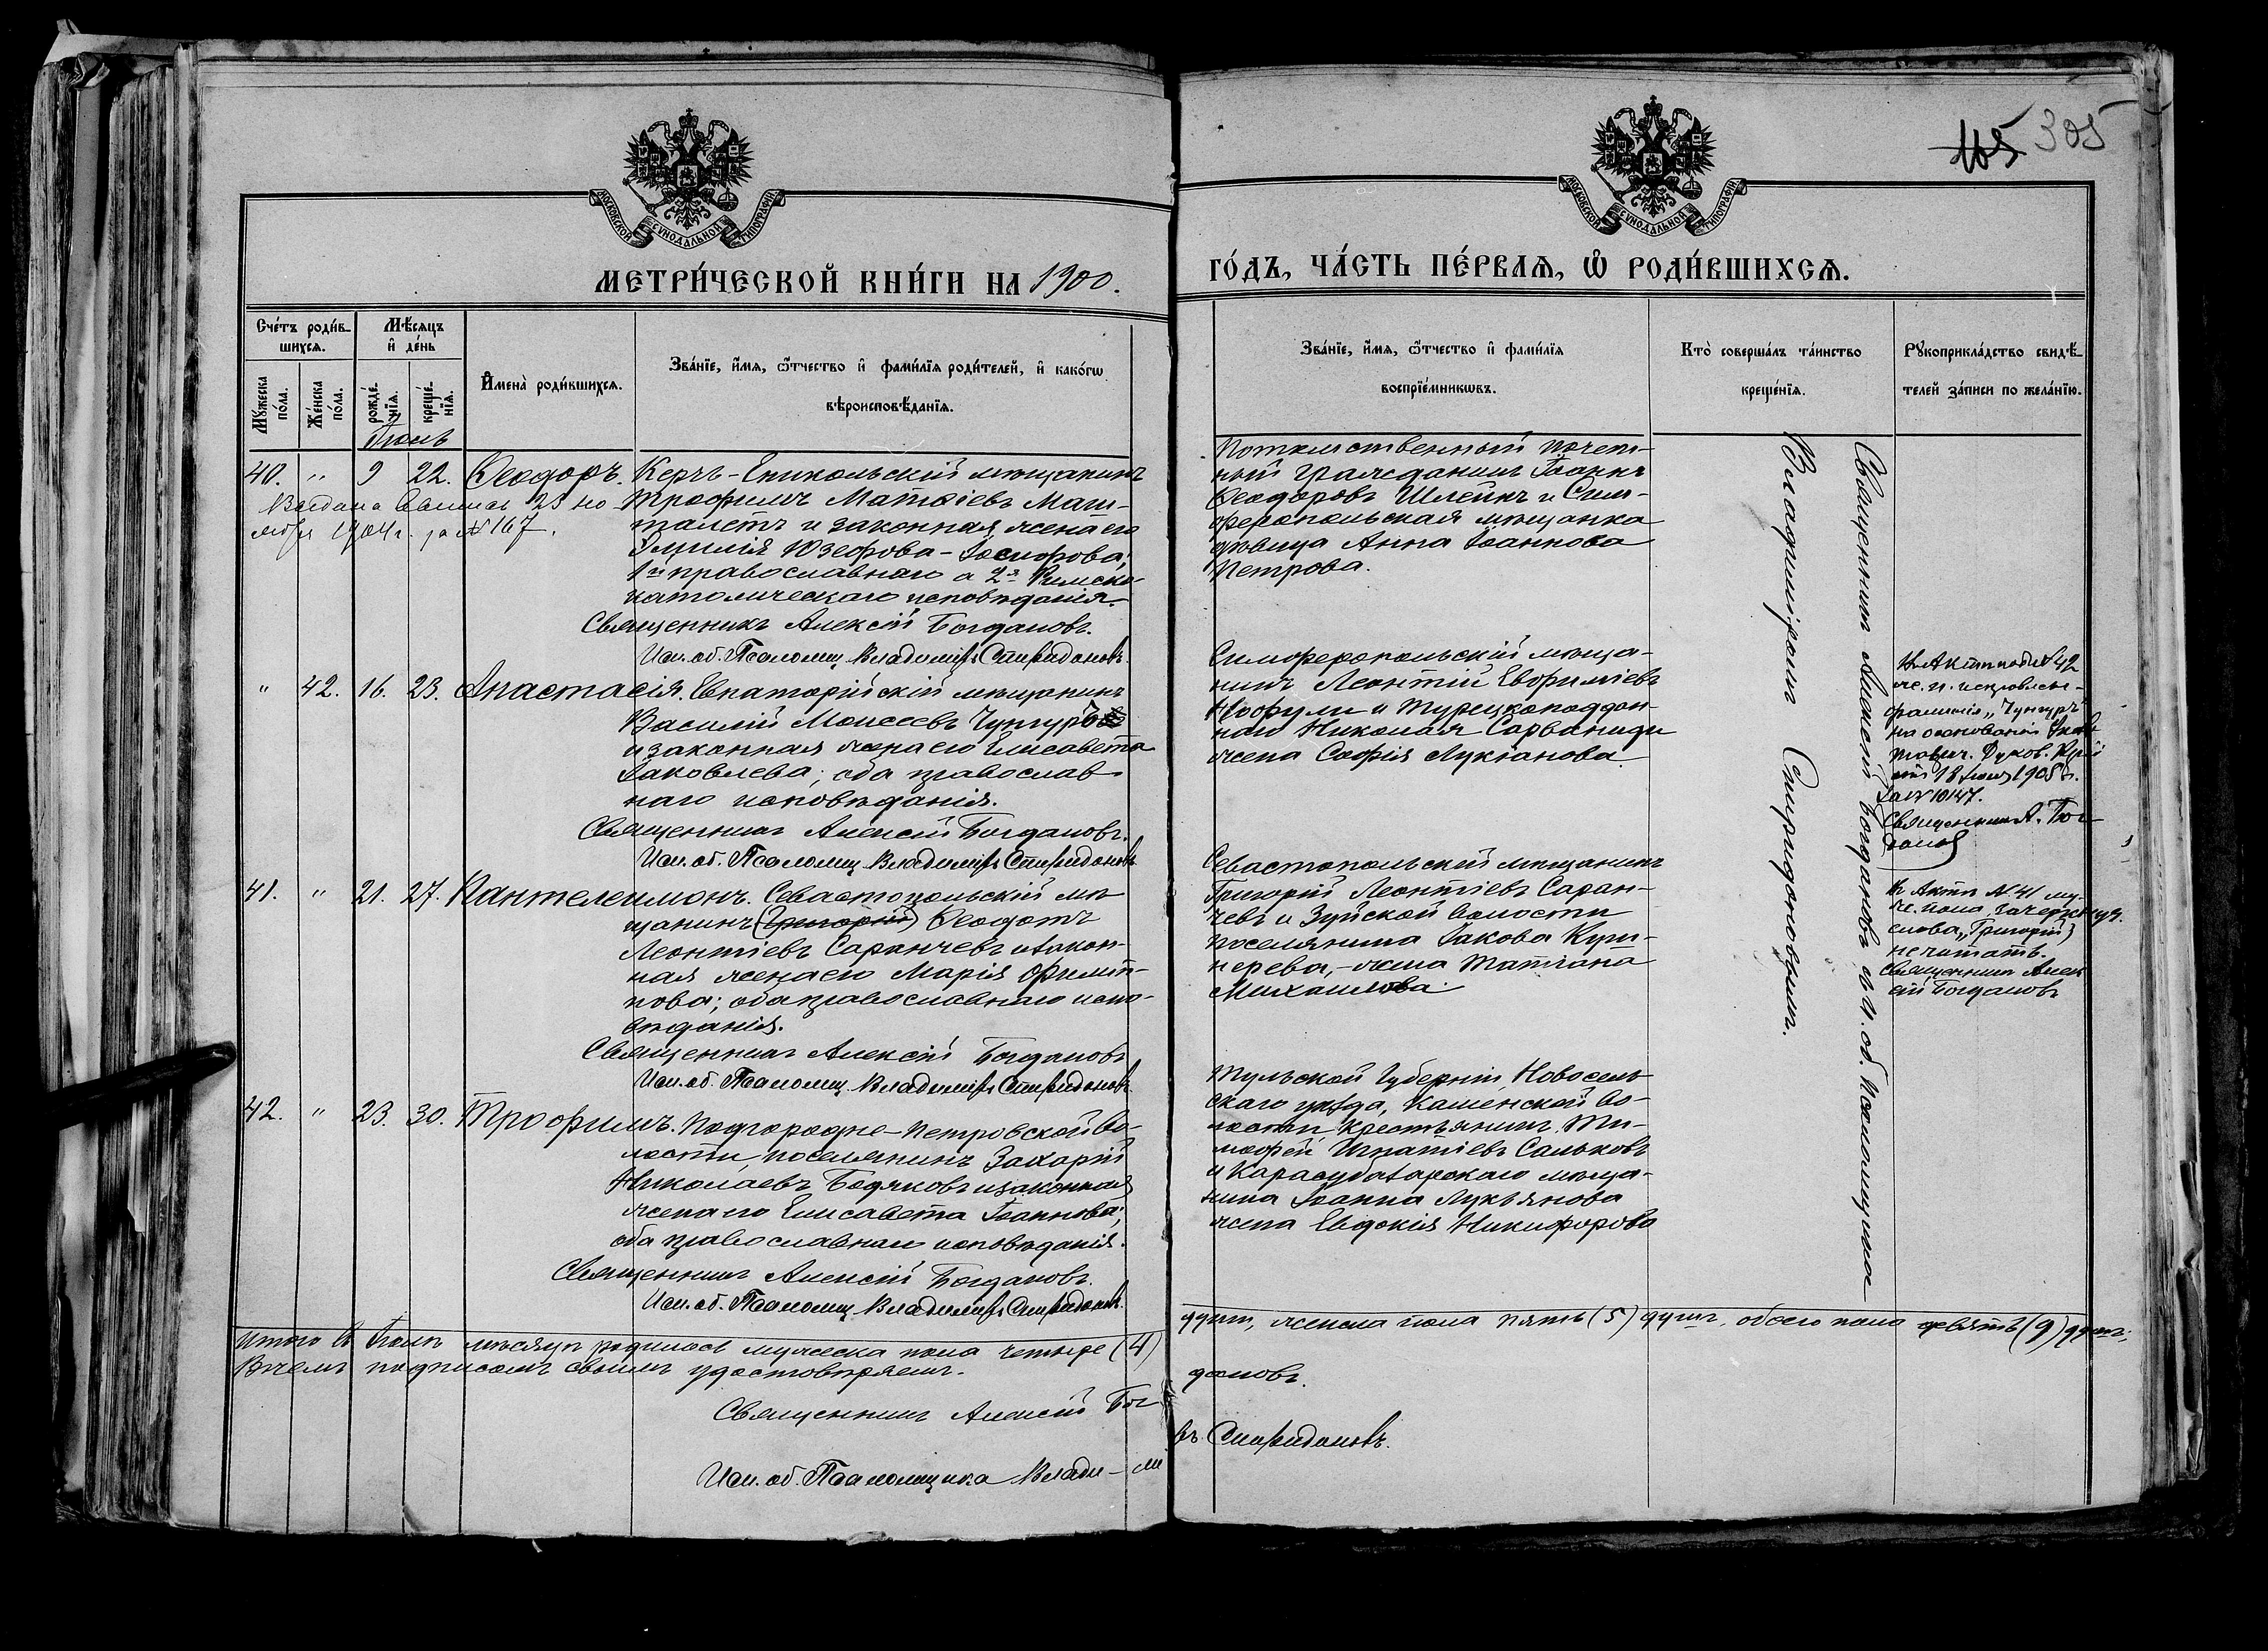 105 305
МОСКОВСКОЙ СУНОДАЛЬНОЙ ТИПОГРАФІИ.
МОСКОВСКОЙ СУНОДАЛЬНОЙ ТИПОГРАФІИ.
МЕТРИ́ЧЕСКОЙ КНИ́ГИ НА 1900.
ГО́ДЪ, ЧА́СТЬ ПЕ́РВАѦ, Ѽ РОДИ́ВШИХСѦ.
Сче́тъ роди́в-
шихсѧ.
Мѣ́сѧцъ
и҆ де́нь
Мꙋ́жеска
по́ла.
Же́нска
по́ла.
рожде́-
нїѧ.
креще́-
нїѧ.
И҆мена̀ роди́вшихсѧ.
Зва́нїе, и҆́мѧ, ѻ҆́тчество и҆ фами́лїѧ роди́телей, и҆ како́гѡ
вѣроисповѣ́данїѧ.
Зва́нїе, и҆́мѧ, ѻ҆́тчество и҆ фами́лїѧ
воспрїе́мникѡвъ.
Кто̀ соверша́лъ та́инство
креще́нїѧ.
Рꙋкоприкла́дство свидѣ́-
телей за́писи по жела́нїю.
Іюль
40. " 9 22. Ѳеодоръ. Керчь-Еникольскій мѣщанинъ
Выдана 25 но-
ября 1904 г. за № 167.
Трофимъ Матѳіевъ Маш-
талетъ и законная жена его
Эмилія Юзефова-Іосифова;
1й православнаго а 2я Римско-
католическаго исповѣданія.
Священникъ Алексій Богдановъ.
Исп. об. Псаломщ. Владиміръ Спиридоновъ.
Потомственный почет-
ный гражданинъ Іоаннъ
Ѳеодоровъ Шлейнъ и Сим-
феропольская мѣщанка
дѣвица Анна Іоаннова
Петрова.
" 42. 16. 23. Анастасія. Евпаторійскій мѣщанинъ
Василій Моисеевъ Чунгуръ
и законная жена его Елисавета
Іаковлева; оба православ-
наго исповѣданія.
Священникъ Алексій Богдановъ.
Исп. об. Псаломщ. Владиміръ Спиридоновъ
Симферопольскій мѣща-
нинъ Леонтій Евфиміевъ
и Турецкоподдан-
наго Николая Сарваниди
жена Софія Лукіанова.
Въ Актѣ подъ № 42
же. п. исправлен-
фамилія "Чунгуръ"
на основаніи Указа
Таврич. Духов. Конси
1905 г.
за № 10147.
Священникъ А. Бог-
дановъ
41. " 21. 27. Пантелеимонъ. Севастопольскій мѣ-
щанинъ (Григорій) Ѳеодотъ
Леонтіевъ Саранчевъ и закон-
ная жена его Марія Филип-
пова; оба православнаго испо-
вѣданія.
Священникъ Алексій Богдановъ
Исп. об. Псаломщ. Владиміръ Спиридоновъ.
Севастопольскій мѣщанинъ
Григорій Леонтіевъ Саран-
чевъ и Зуйской волости
поселянина Іакова Куш-
нерева,-жена Татіана
Михаилова.
Въ Актѣ № 41 му-
же. пола, зачеркнут.
слова "Григорій"
не читать.
Священникъ Алек-
сій Богдановъ
42. " 23. 30. Трофимъ. Подгородне-Петровской во-
лости, поселянинъ Захарій
Николаевъ Бедяковъ и законная
жена его Елисавета Іоаннова;
оба православнаго исповѣданія.
Священникъ Алексій Богдановъ.
Исп. об. Псаломщ. Владиміръ Спиридоновъ.
Тульской Губерніи, Новосель-
скаго уѣзда, Каменской во-
лости Крестьянинъ Ти-
мофей Игнатіевъ Сальковъ
и Карасубазарскаго мѣща-
нина Іоанна Лукьянова
жена Евдокія Никифорова
Священникъ Алексій Богдановъ и И. об. Псаломщика
Владиміромъ Спиридоновымъ.
Итого въ Іюлѣ мѣсяцѣ родилось мужеска пола четыре (4) душъ, женска пола пять (5) душъ, обоего пола девять (9) душъ;
Въ чемъ подписомъ своимъ удостовѣряемъ.
Священникъ Алексій Богдановъ.
Исп. об. Псаломщика Владиміръ Спиридоновъ.